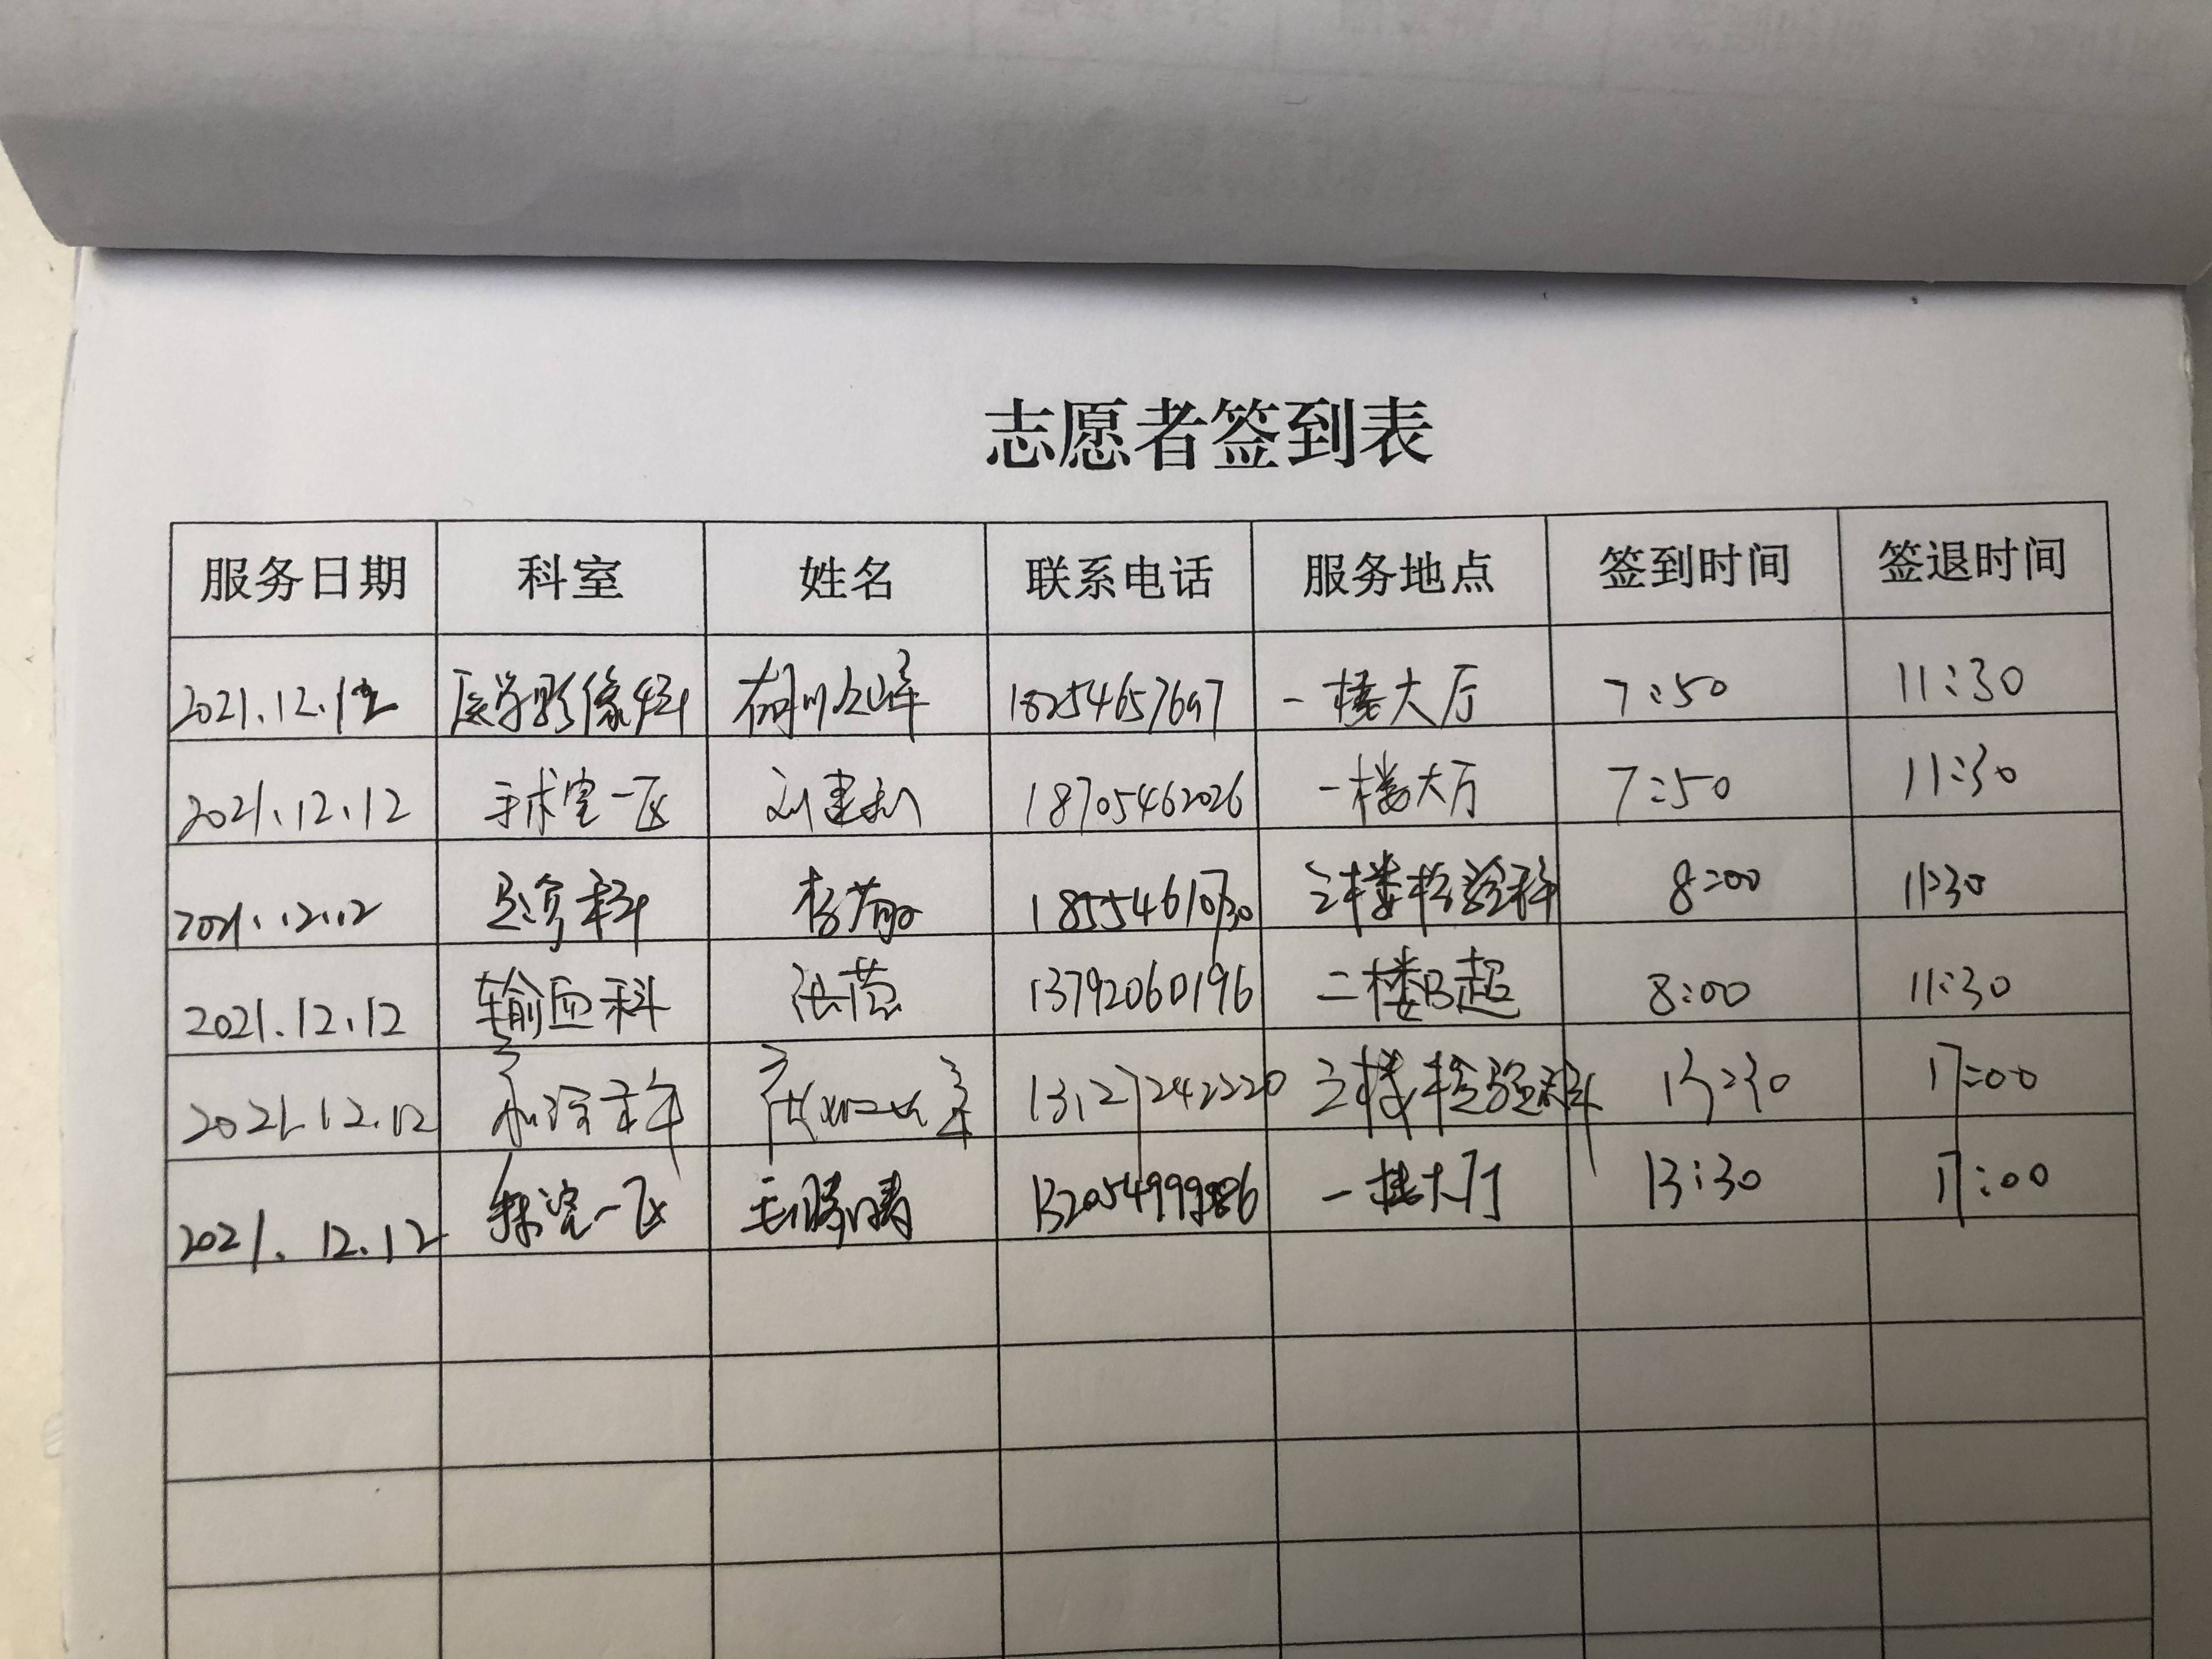 志愿者签到表
服务日期 科室 姓名 联系电话 服务地点 签到时间 签退时间
2021.12.12 医学影像科 一楼大厅 7:50 11:30
2021.12.12 手术室一区 刘建 18705462026 一楼大厅 7:50 11:30
2021.12.12 急诊科 杨 18554610730 三楼检验科 8:00 11:30
2021.12.12 输血科 张 13792060196 二楼B超 8:00 11:30
2021.12.12 13127242220 三楼检验科 13:30 17:00
2021.12.12 手术室一区 13:30 一楼大厅 17:00